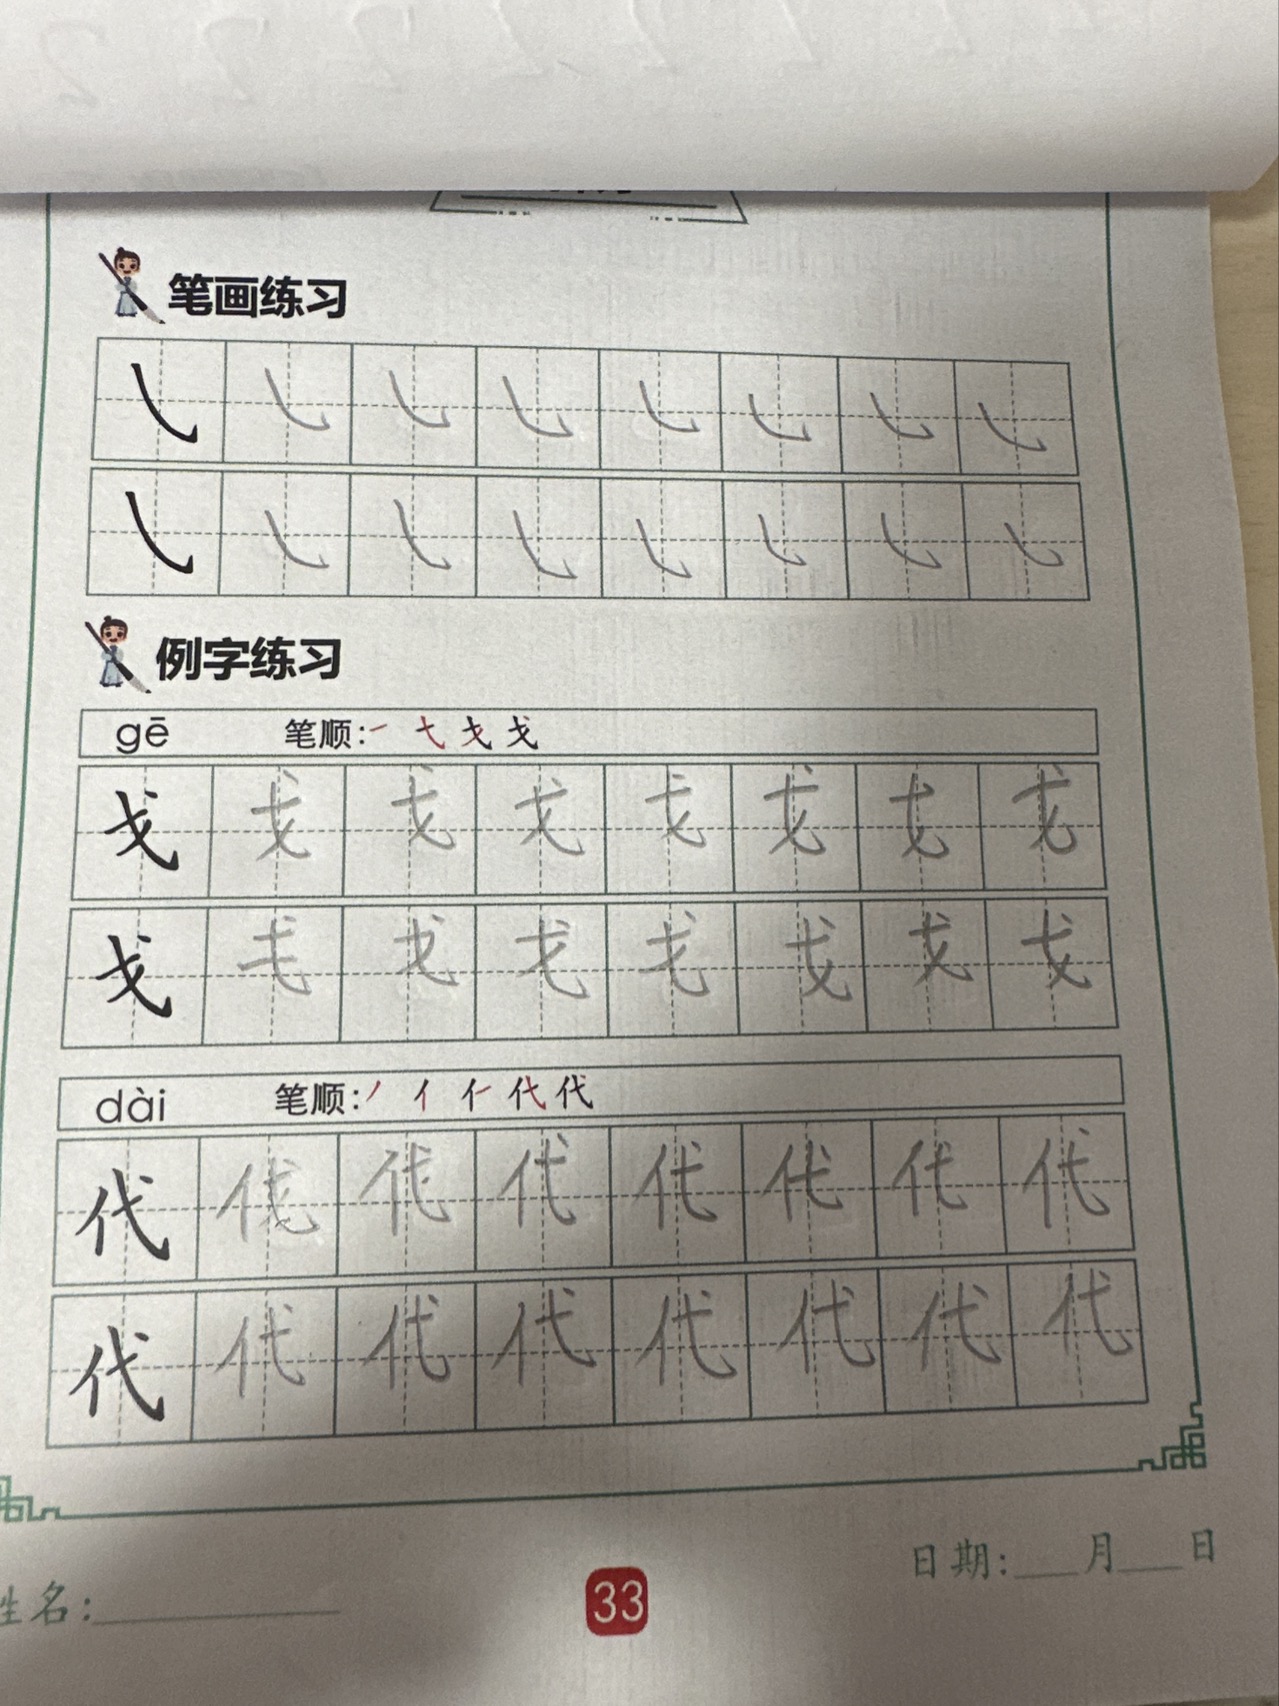 笔画练习
㇂ ㇂ ㇂ ㇂ ㇂ ㇂ ㇂ ㇂
㇂ ㇂ ㇂ ㇂ ㇂ ㇂ ㇂ ㇂
例字练习
gē 笔顺:㇀ 七 戈 戈
戈 戈 戈 戈 戈 戈 戈 戈
戈 戈 戈 戈 戈 戈 戈 戈
dài 笔顺:丿 亻 代 代
代 代 代 代 代 代 代 代
代 代 代 代 代 代 代 代
姓名:
日期: 月 日
33